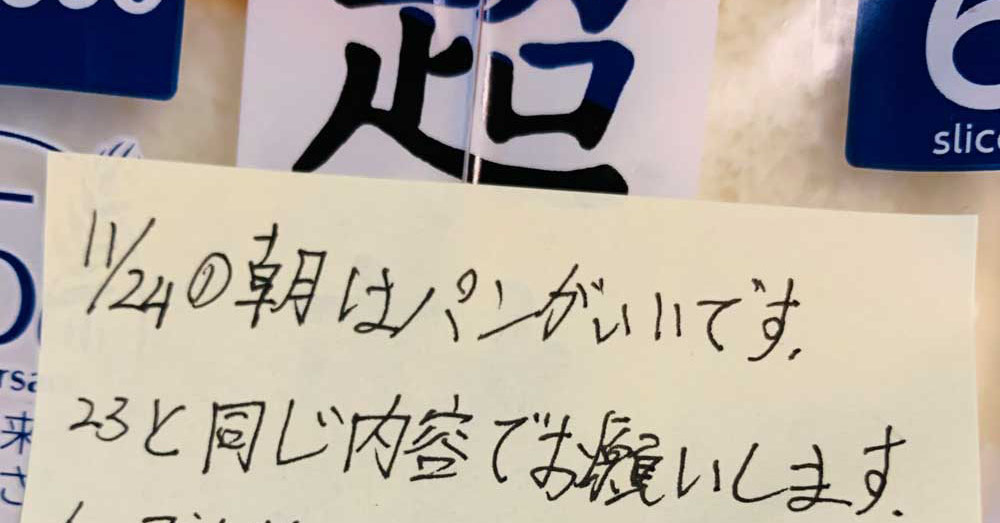 超
6
slic
11/24の朝はパンがいいです.
23と同じ内容でお願いします.
rsa
来
さ